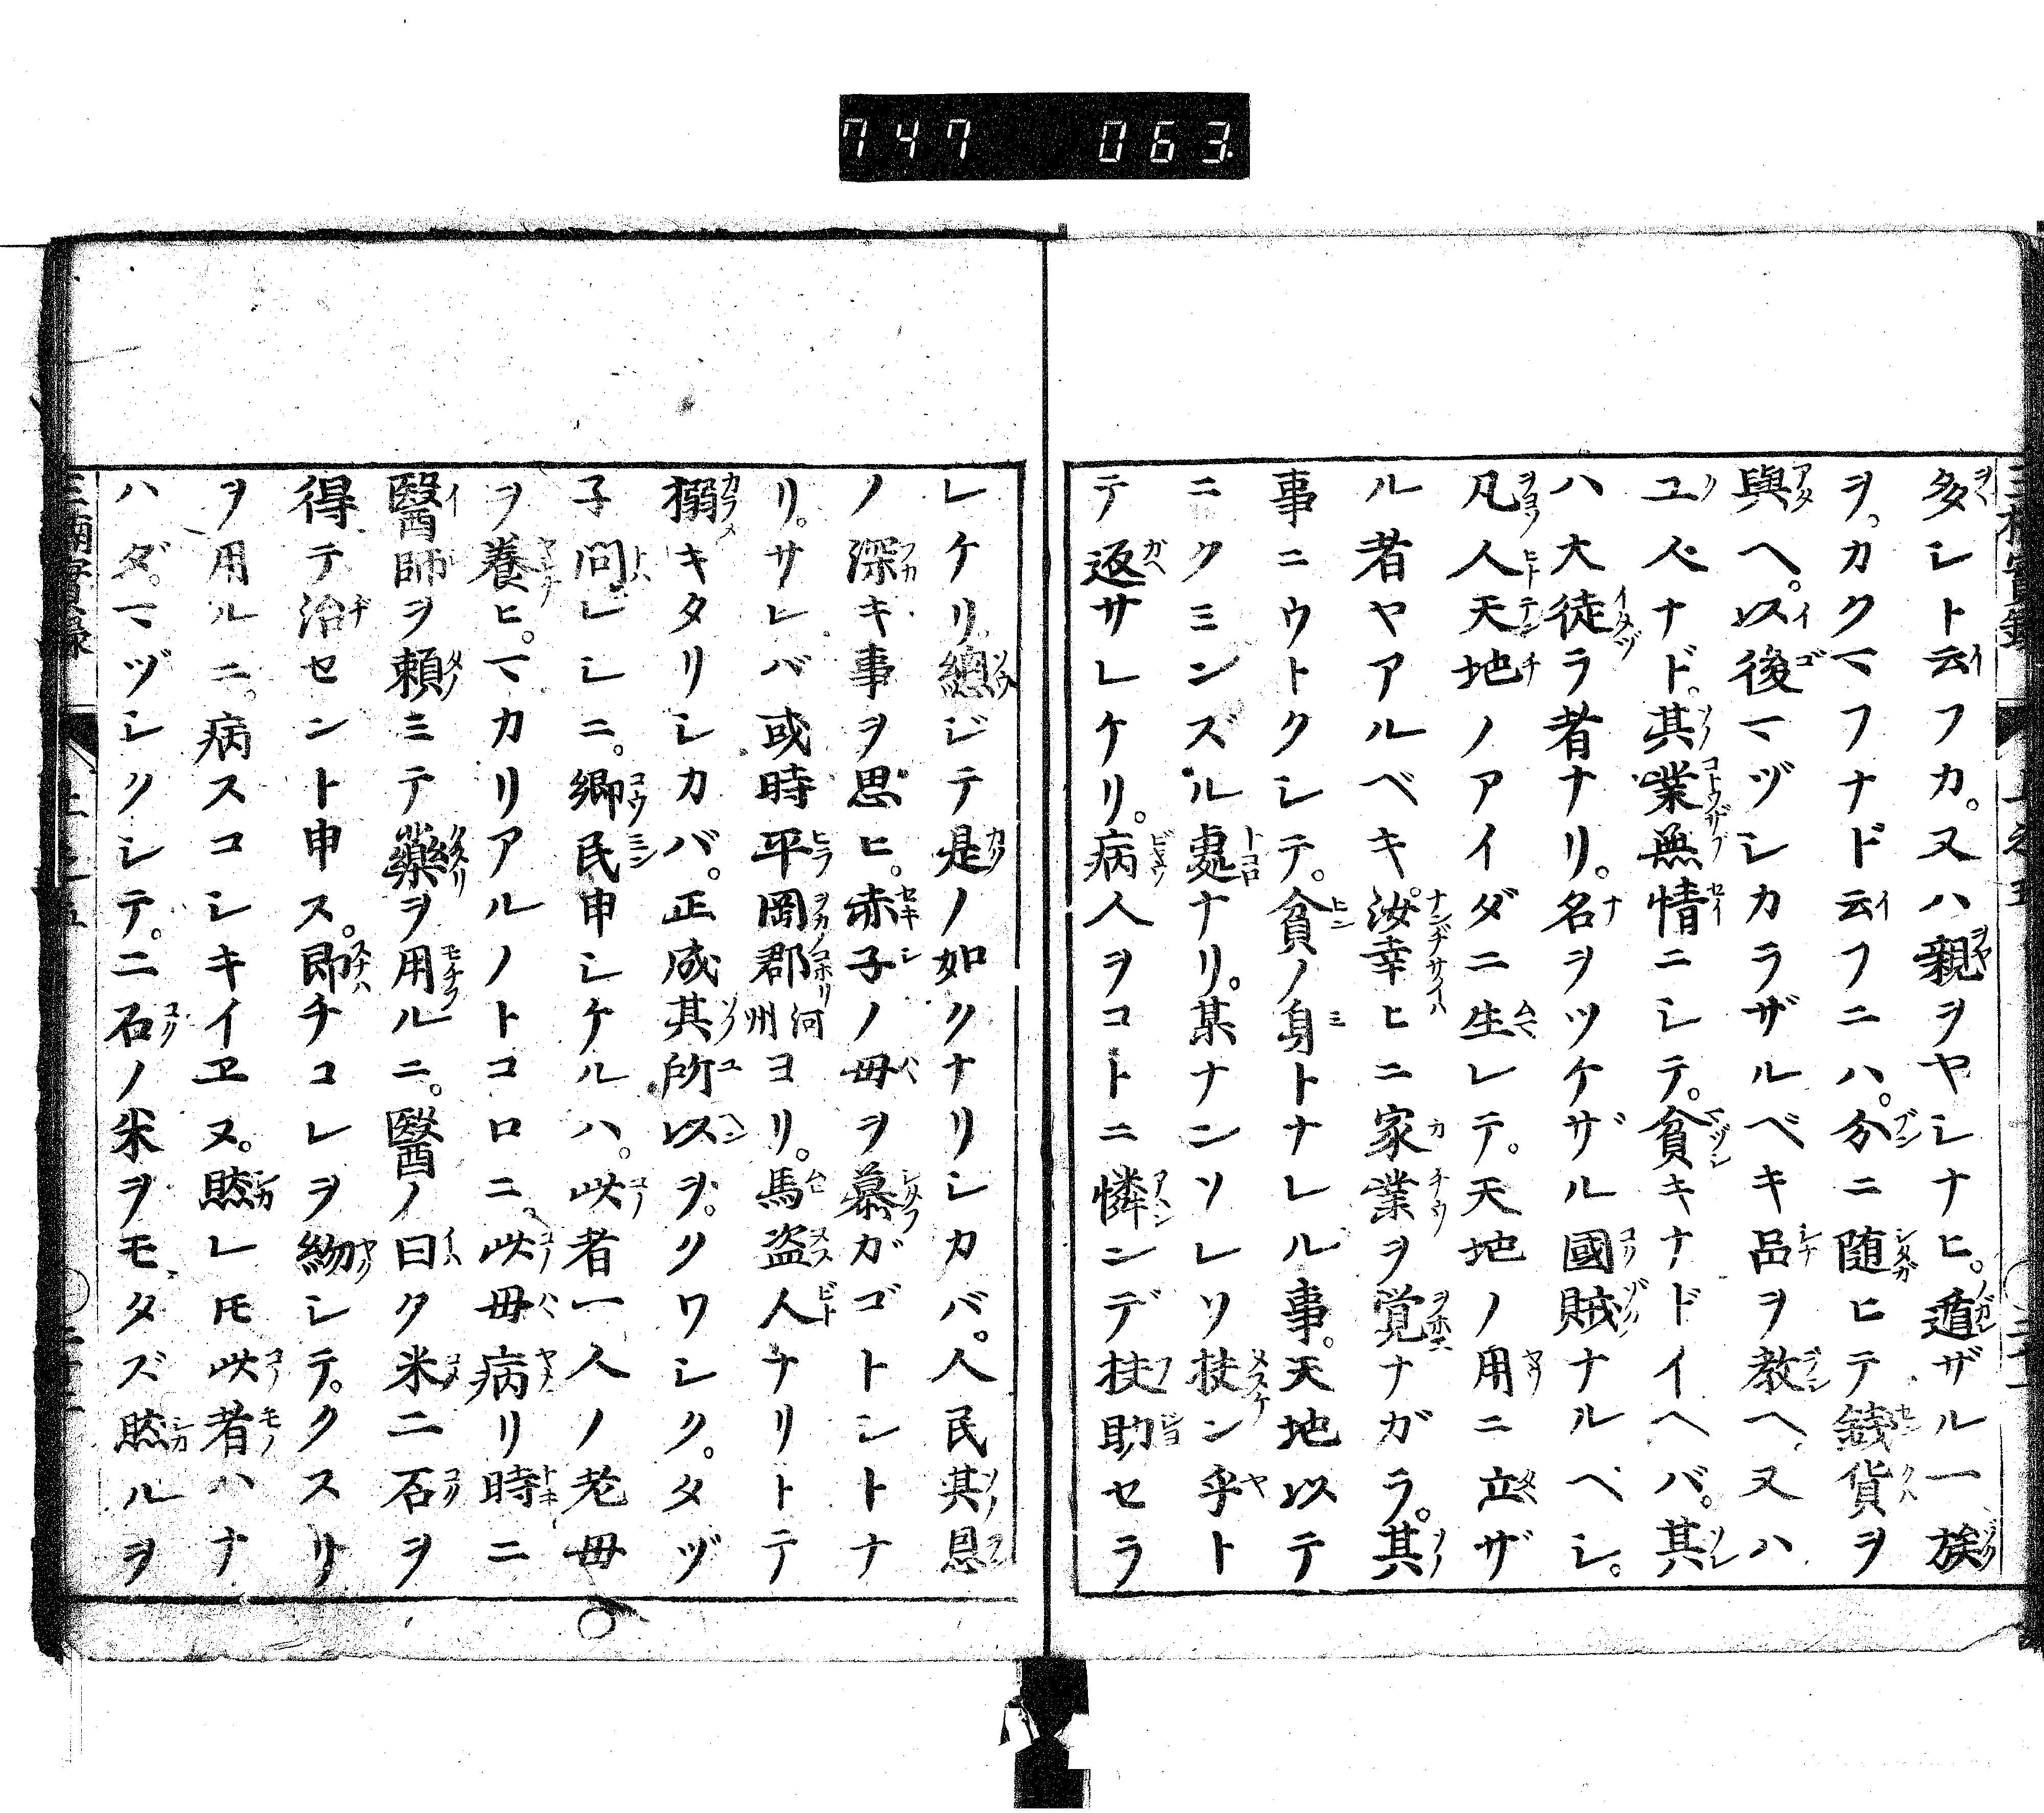 747 063
多シト云フカ。又ハ親ヲヤシナヒ。遁ザル一族
ヲ。カクマフナド云フニハ。分ニ随ヒテ銭貨ヲ
與ヘ。以後マヅシカラザルベキ品ヲ教ヘ、又ハ
ユヘナド。其業無情ニシテ。貧キナドイヘバ。其
ハ大徒ラ者ナリ。名ヲツケザル國賊ナルヘシ。
凡人天地ノアイダニ生レテ。天地ノ用ニ立ザ
ル者ヤアルベキ。汝幸ヒニ家業ヲ覚ナガラ。其
事ニウトクシテ。貧ノ身トナレル事。天地以テ
ニクミンズル處ナリ。某ナンソレソ扶ン乎ト
テ返サレケリ。病人ヲコトニ憐ンデ扶助セラ
レケリ。總ジテ是ノ如クナリシカバ。人民其恩
ノ深キ事ヲ思ヒ。赤子ノ母ヲ慕ガゴトシトナ
リ。サレバ或時平岡郡河州ヨリ。馬盗人ナリトテ
搦キタリシカバ。正成其所以ヲ。クワシク。タヅ
子問レシニ。郷民申シケルハ。此者一人ノ老母
ヲ養ヒ。マカリアルノトコロニ。此母病リ時ニ
醫師ヲ頼ミテ藥ヲ用ルニ。醫ノ曰ク米二石ヲ
得テ治セント申ス。即チコレヲ約シテ。クスリ
ヲ用ルニ。病スコシキイヱヌ。然レ𪜈此者ハナ
ハダ。マヅシクシテ。二石ノ米ヲモタズ然ルヲ